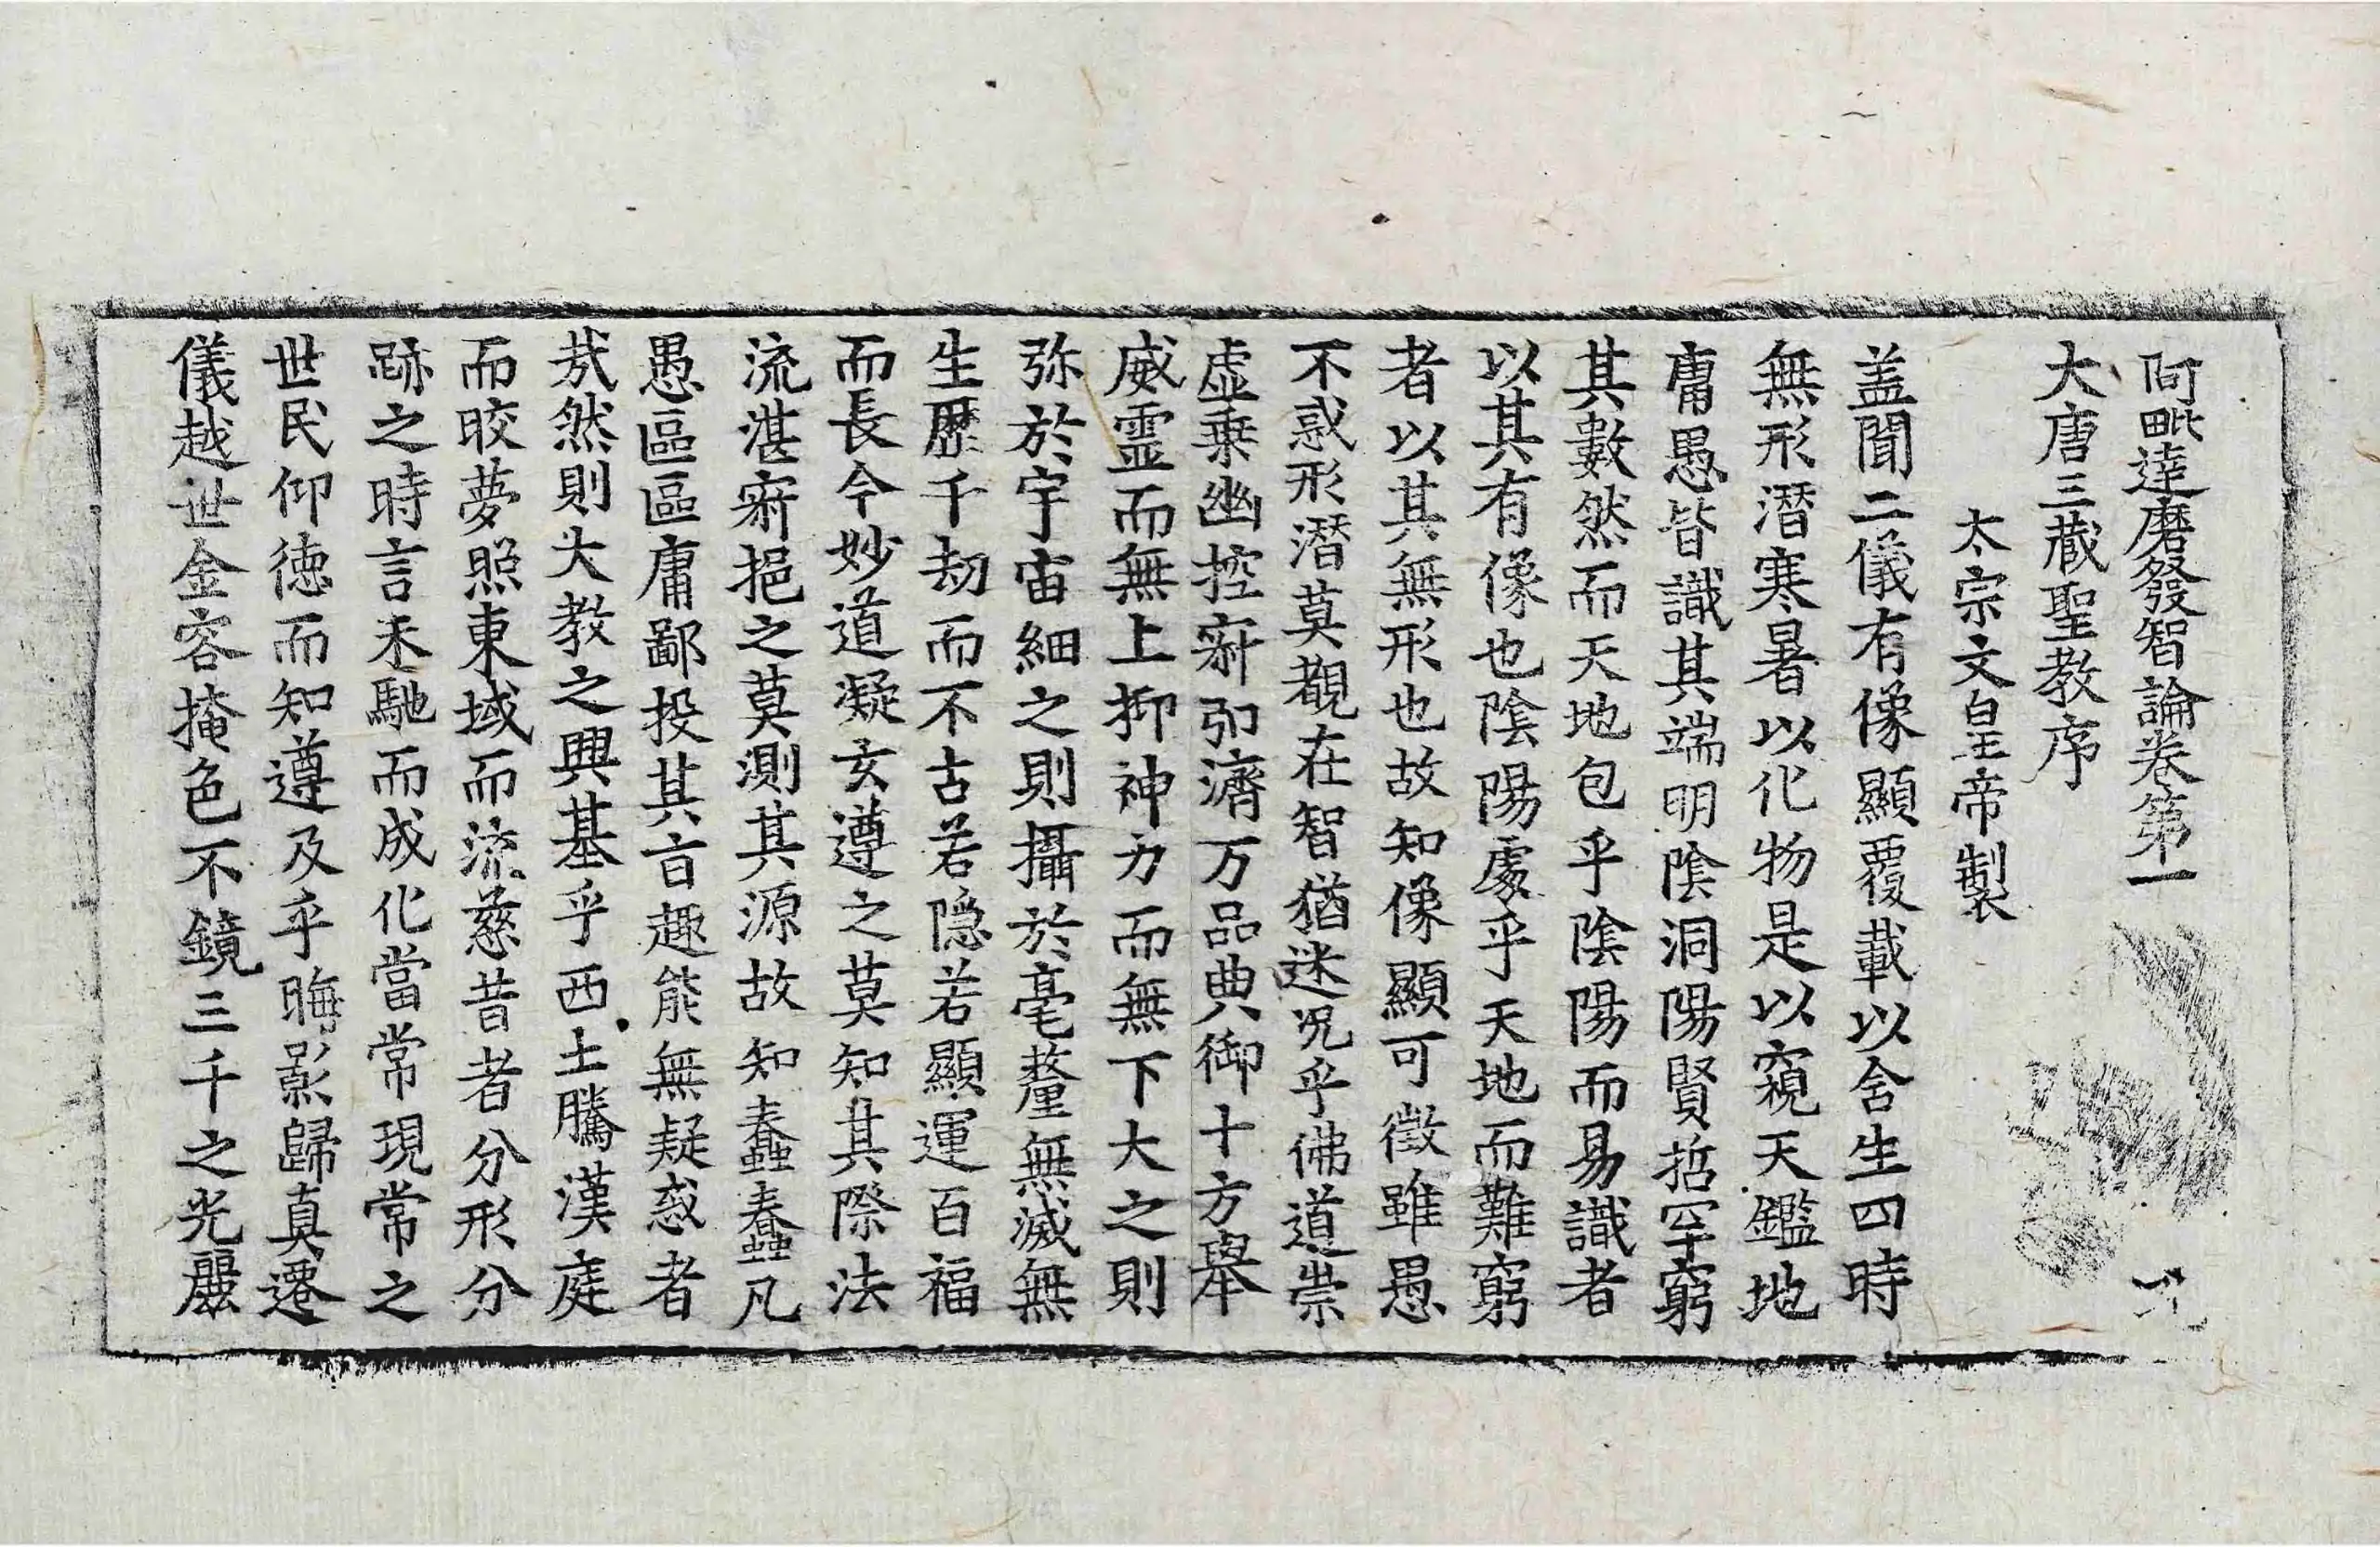 阿毗達磨發智論卷第一
大唐三藏聖教序
太宗文皇帝製
盖聞二儀有像顯覆載以含生四時
無形潛寒暑以化物是以窺天鑑地
庸愚皆識其端明陰洞陽賢哲罕窮
其數然而天地包乎陰陽而易識者
以其有像也陰陽處乎天地而難窮
者以其無形也故知像顯可徵雖愚
不惑形潛莫覩在智猶迷况乎佛道崇
虛乗幽控寂弘濟万品典御十方舉
威霊而無上抑神力而無下大之則
弥於宇宙細之則攝於毫釐無滅無
生歷千劫而不古若隐若顯運百福
而長今妙道凝玄遵之莫知其際法
流湛寂挹之莫測其源故知蠢蠢凡
愚區區庸鄙投其旨趣能無疑惑者
㦲然則大教之興基乎西土騰漢庭
而皎夢照東域而流慈昔者分形分
跡之時言未馳而成化當常現常之
世民仰徳而知遵及乎晦影歸真遷
儀越世金容掩色不鏡三千之光麗